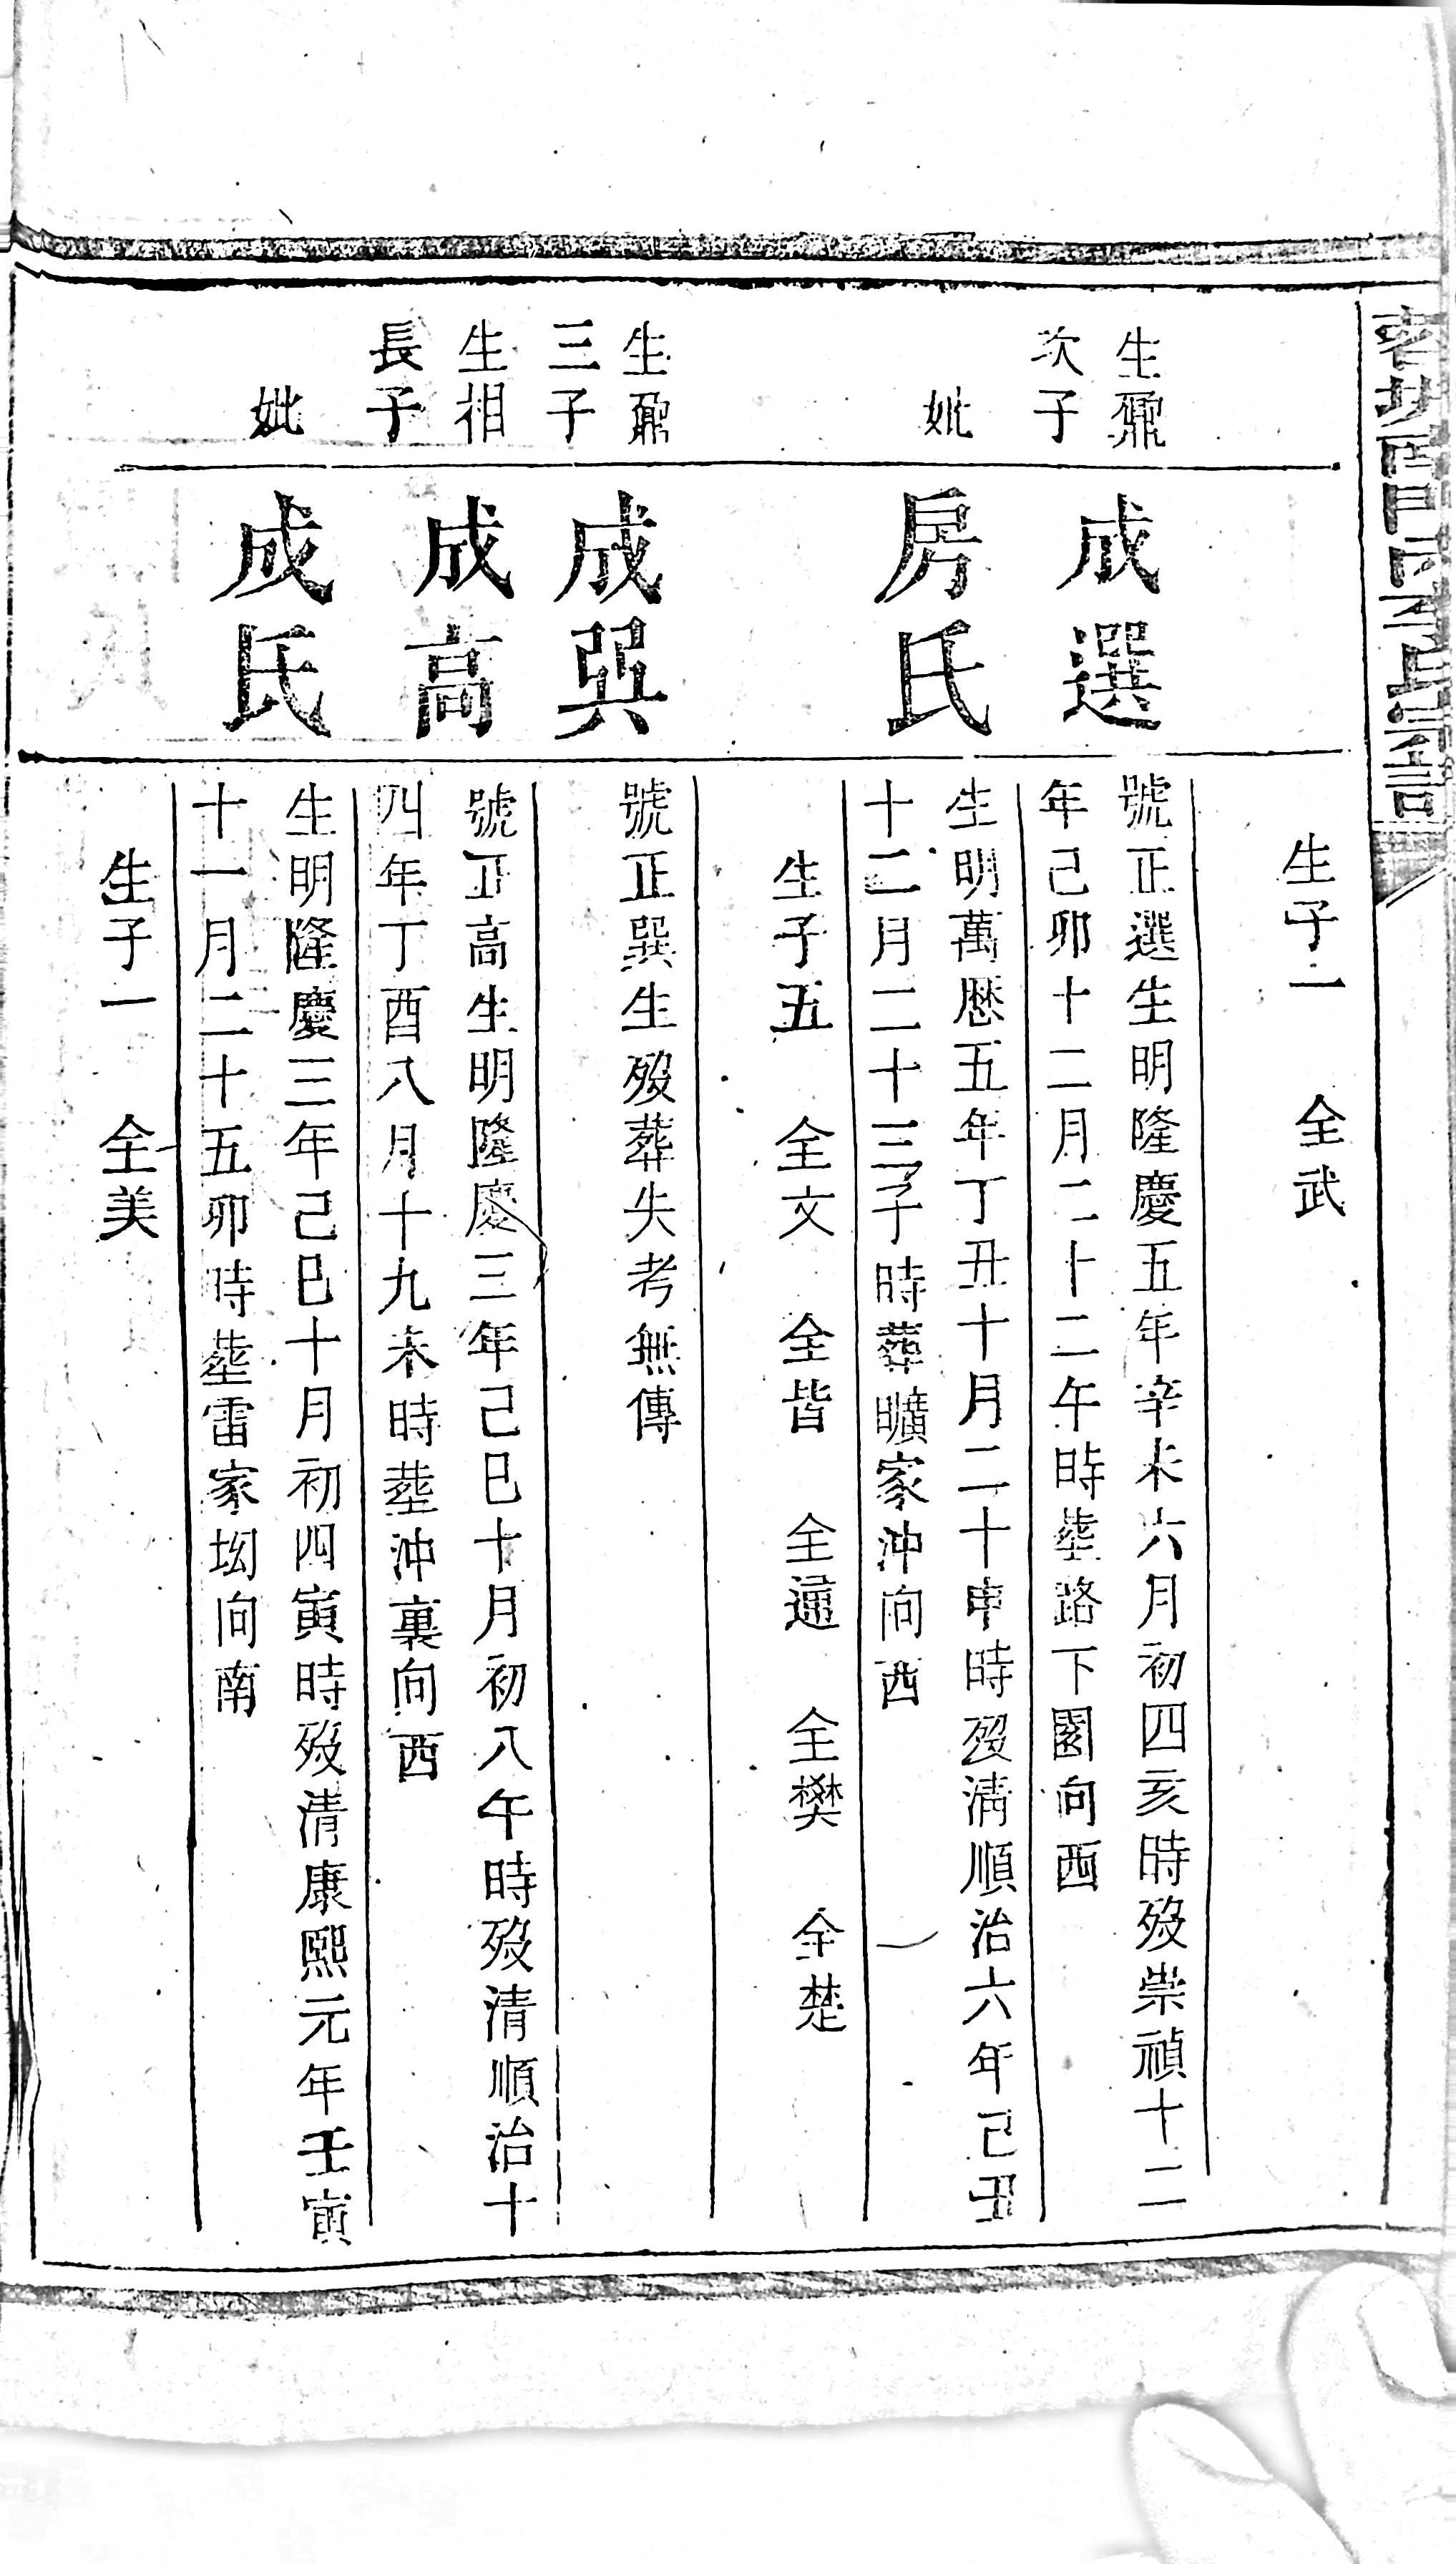 生子一 全武
生鼐
次子
成選
號正選生明隆慶五年辛未六月初四亥時歿崇禎十二
年己卯十二月二十二午時塟路下園向西
妣
房氏
生明萬厯五年丁丑十月二十申時歿清順治六年己丑
十二月二十三子時葬曠家沖向西
生子五 全文 全皆 全通 全樊 全楚
生鼐
三子
成巽
號正巽生歿葬失考無傳
生相
長子
成高
號正高生明隆慶三年己巳十月初八午時歿清順治十
四年丁酉八月十九未時塟沖裏向西
妣
成氏
生明隆慶三年己巳十月初四寅時歿清康熙元年壬寅
十一月二十五卯時塟雷家坳向南
生子一 全美